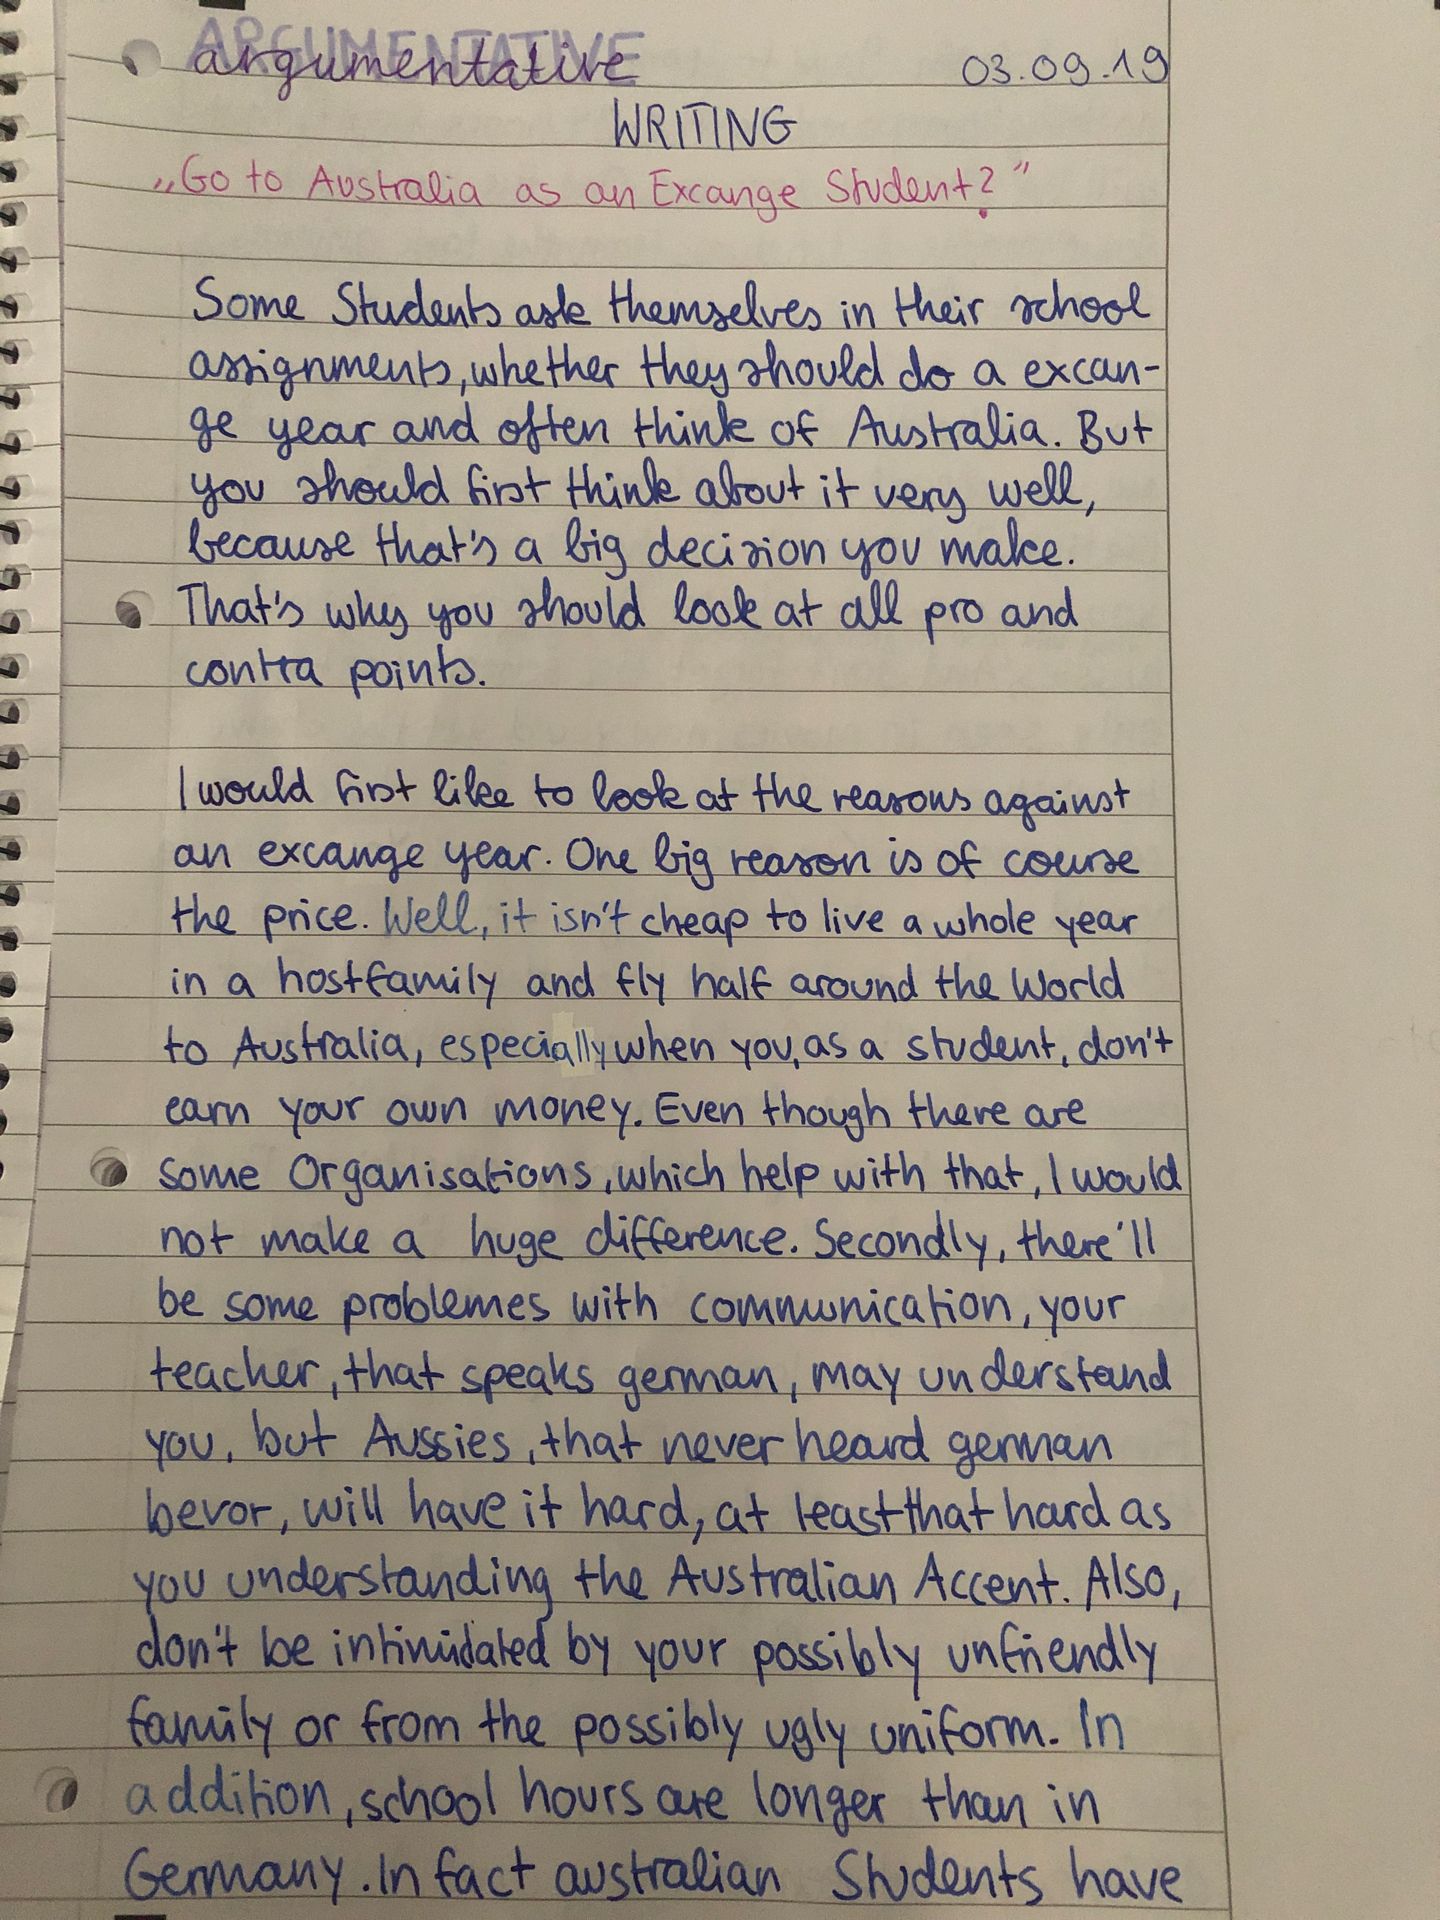 ARGUMENTATIVE
argumentative 03.09.19
WRITING
„Go to Australia as an Excange Student?"
Some Students ask themselves in their school
assignments, whether they should do a excan-
ge year and often think of Australia. But
you should first think about it very well,
because that's a big decision you make.
That's why you should look at all pro and
contra points.
I would first like to look at the reasons against
an excange year. One big reason is of course
the price. Well, it isn't cheap to live a whole year
in a hostfamily and fly half around the World
to Australia, especially when you, as a student, don't
earn your own money. Even though there are
some Organisations, which help with that, I would
not make a huge difference. Secondly, there'll
be some problemes with communication, your
teacher, that speaks german, may understand
you, but Aussies, that never heard german
bevor, will have it hard, at least that hard as
you understanding the Australian Accent. Also,
don't be intimidated by your possibly unfriendly
family or from the possibly ugly uniform. In
addition, school hours are longer than in
Germany. In fact australian Students have